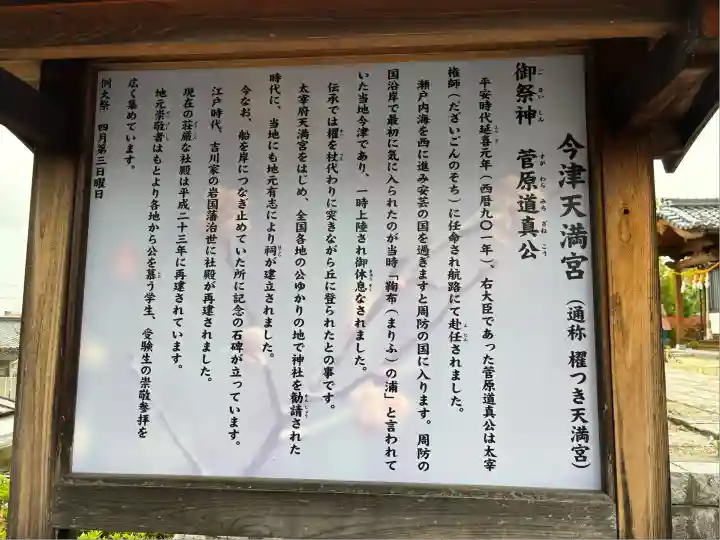 今津天満宮（通称 櫂つき天満宮）
御祭神 菅原道真公
平安時代延喜元年（西暦九〇一年）、右大臣であった菅原道真公は太宰
権師（だざいごんのそち）に任命され航路にて赴任されました。
瀬戸内海を西に進み安芸の国を過ぎますと周防の国に入ります。周防の
国沿岸で最初に気に入られたのが当時「鞠布（まりふ）の浦」と言われて
いた当地今津であり、一時上陸され御休息なされました。
伝承では櫂を杖代わりに突きながら丘に登られたとの事です。
太宰府天満宮をはじめ、全国各地の公ゆかりの地で神社を勧請された
時代に、当地にも地元有志により祠が建立されました。
今なお、船を岸につなぎ止めていた所に記念の石碑が立っています。
江戸時代、吉川家の岩国藩治世に社殿が再建されました。
現在の荘厳な社殿は平成二十三年に再建されています。
地元崇敬者はもとより各地から公を慕う学生、受験生の崇敬参拝を
広く集めています。
例大祭 四月第三日曜日